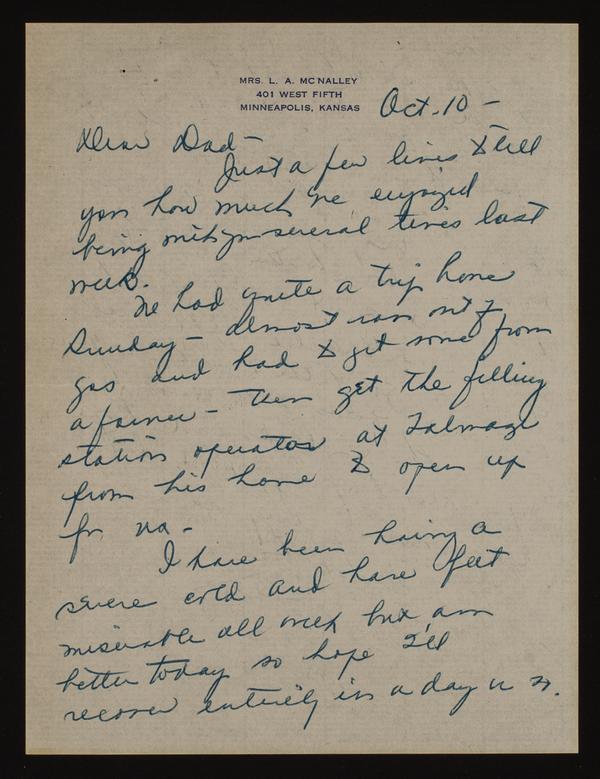 MRS. L. A. MCNALLEY
401 WEST FIFTH
MINNEAPOLIS, KANSAS
Oct. 10 -
Dear Dad -
Just a few lines to tell
you how much we enjoyed
being with you several times last
week.
We had quite a trip home
Sunday - almost ran out of
gas and had to get some from
a farmer - then get the filling
station operator at Talmage
from his home to open up
for us -
I have been having a
severe cold and have felt
miserable all week but am
better today so hope I'll
recover entirely in a day or so.